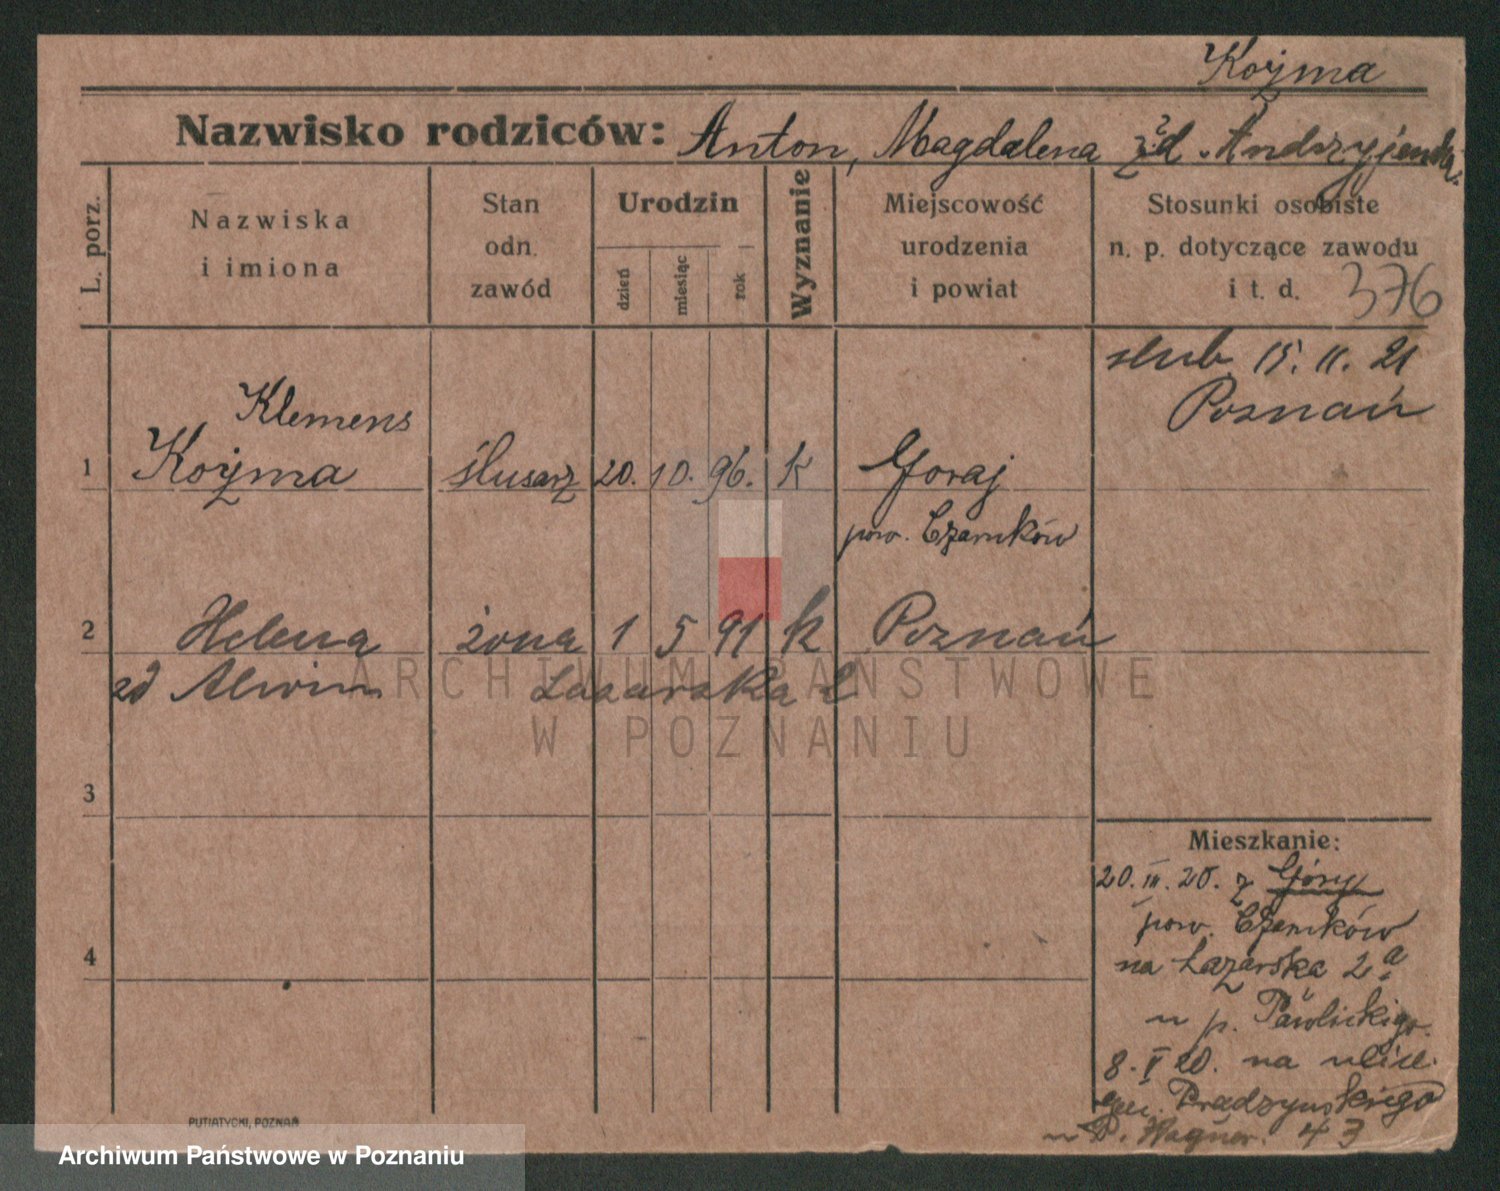 Kożma
Nazwisko rodziców: Anton, Magdalena zd. Andrzyjewska
L. porz.
Nazwiska
i imiona
Stan
odn.
zawód
Urodzin
dzień
miesiąc
rok
Wyznanie
Miejscowość
urodzenia
i powiat
Stosunki osobiste
n. p. dotyczące zawodu
i t. d.
376
ślub 15. 11. 21
Poznań
Klemens
1 Kożma ślusarz 20. 10. 96. k Goraj
pow. Czarnków
2 Helena żona 1 5 91 k Poznań
zd Alwin Lazarska
3
4
Mieszkanie:
20. III. 20. z Góry
pow. Czarnków
na Łazarska 2a
u p. Pawlickigo.
8. V 20. na ulice
Pradzynskiego
u P. Wagner. 43
PUTIATYCKI, POZNAŃ
ARCHIWUM PAŃSTWOWE
W POZNANIU
Archiwum Państwowe w Poznaniu